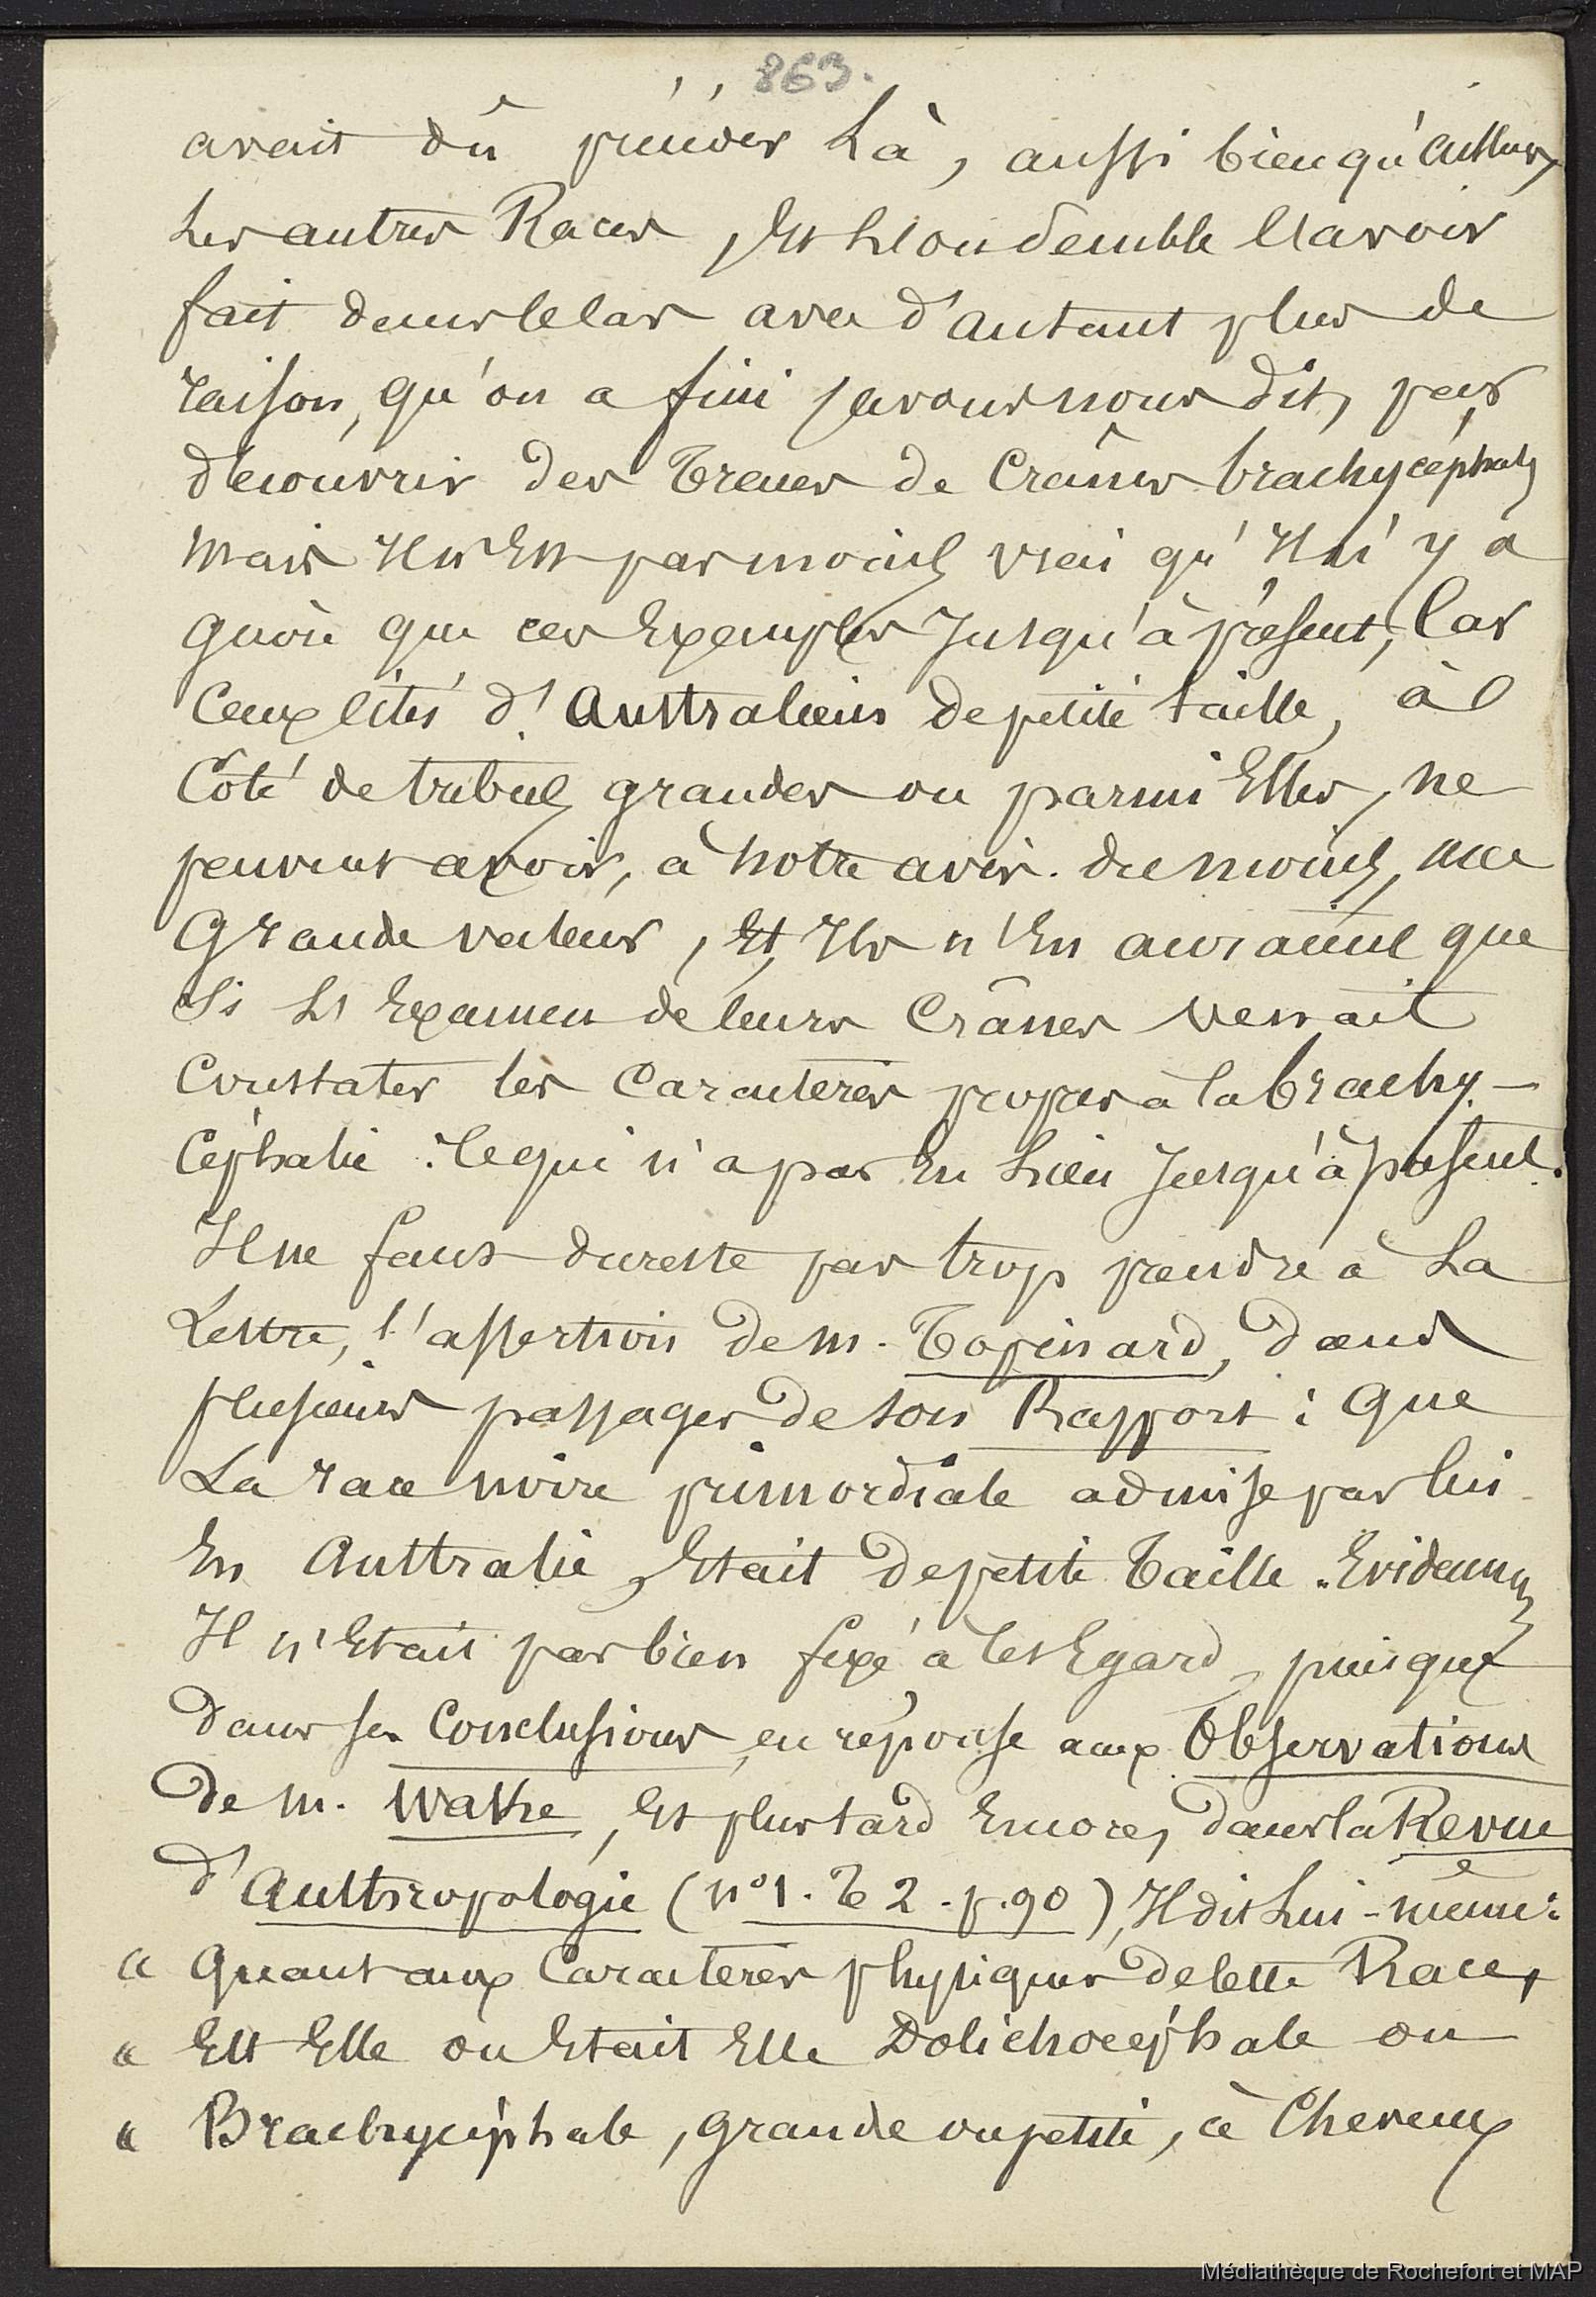 863.
avait dû précéder Là, aussi bien qu'ailleurs,
Les autres Races, Et L'on semble l'avoir
fait dans le Cas avec d'autant plus de
raison, qu'on a fini, avons nous dit, par
découvrir des Traces de Crânes brachycéphales
Mais Il n'Est pas moins vrai qu'Il n'y a
guère que ces Exemples Jusqu'à présent, Car
Ceux cités d'Australiens de petite taille, à
Côté de tribus grandes ou parmi Elles, ne
peuvent avoir, à notre avis du moins, une
Grande valeur, Et, Ils n'En auraient que
Si L'Examen de leurs Crânes venait
Constater les Caractères propres à la brachy-
Céphalie. Ce qui n'a pas Eu Lieu Jusqu'à présent.
Il ne faut du reste pas trop prendre à La
Lettre, l'assertion de M. Topinard, dans
plusieurs passages de son Rapport : Que
La race noire primordiale admise par lui
En Australie, Etait de petite Taille. Evidemmt
Il n'Etait pas bien fixé à Cet Egard, puisque
dans ses Conclusions, en réponse aux Observations
de M. Wake, Et plus tard Encore, dans la Revue
d'Anthropologie (n° 1. T 2. p. 90), Il dit Lui-même :
« Quant aux Caractères physiques de Cette Race,
« Est Elle ou Etait Elle Dolichocéphale ou
« Brachycéphale, grande ou petite, à Cheveux
Médiathèque de Rochefort et MAP